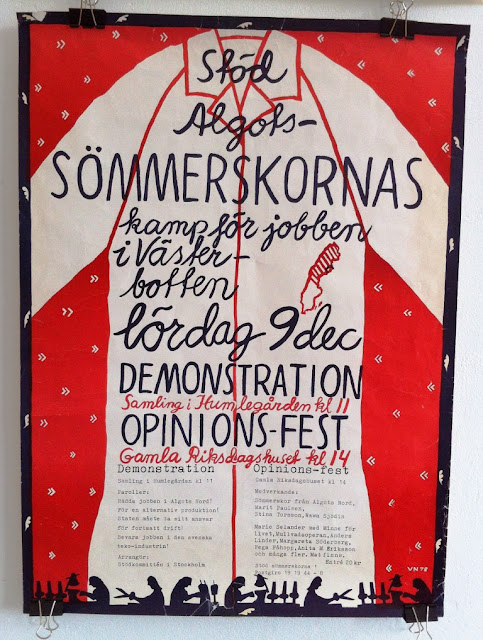 Stöd
Algots-
SÖMMERSKORNAS
kamp för jobben
i Väster-
botten
lördag 9 dec
DEMONSTRATION
Samling i Humlegården kl 11
OPINIONS-FEST
Gamla Riksdagshuset kl 14
Demonstration
Samling i Humlegården kl 11
Paroller:
Rädda jobben i Algots Nord!
För en alternativ produktion!
Staten måste ta sitt ansvar
för fortsatt drift!
Bevara jobben i den svenska
teko-industrin!
Arrangör:
Stödkommittén i Stockholm
Opinions-fest
Gamla Riksdagshuset kl 14
Medverkande:
Sömmerskor från Algots Nord,
Marit Paulsen,
Stina Torsson, Wema Sjödin
Marie Selander med Minne för
livet, Mullvadsoperan, Anders
Linder, Margareta Söderberg,
Anita M Eriksson
och många fler. Mat finns.
Entré 20 kr
Stöd sömmerskorna!
Postgiro
VN 78